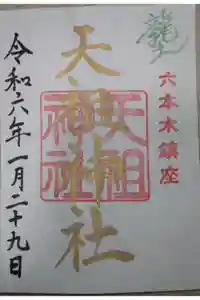 龍
六本木鎮座
天祖神社
天祖神社
令和六年一月二十九日